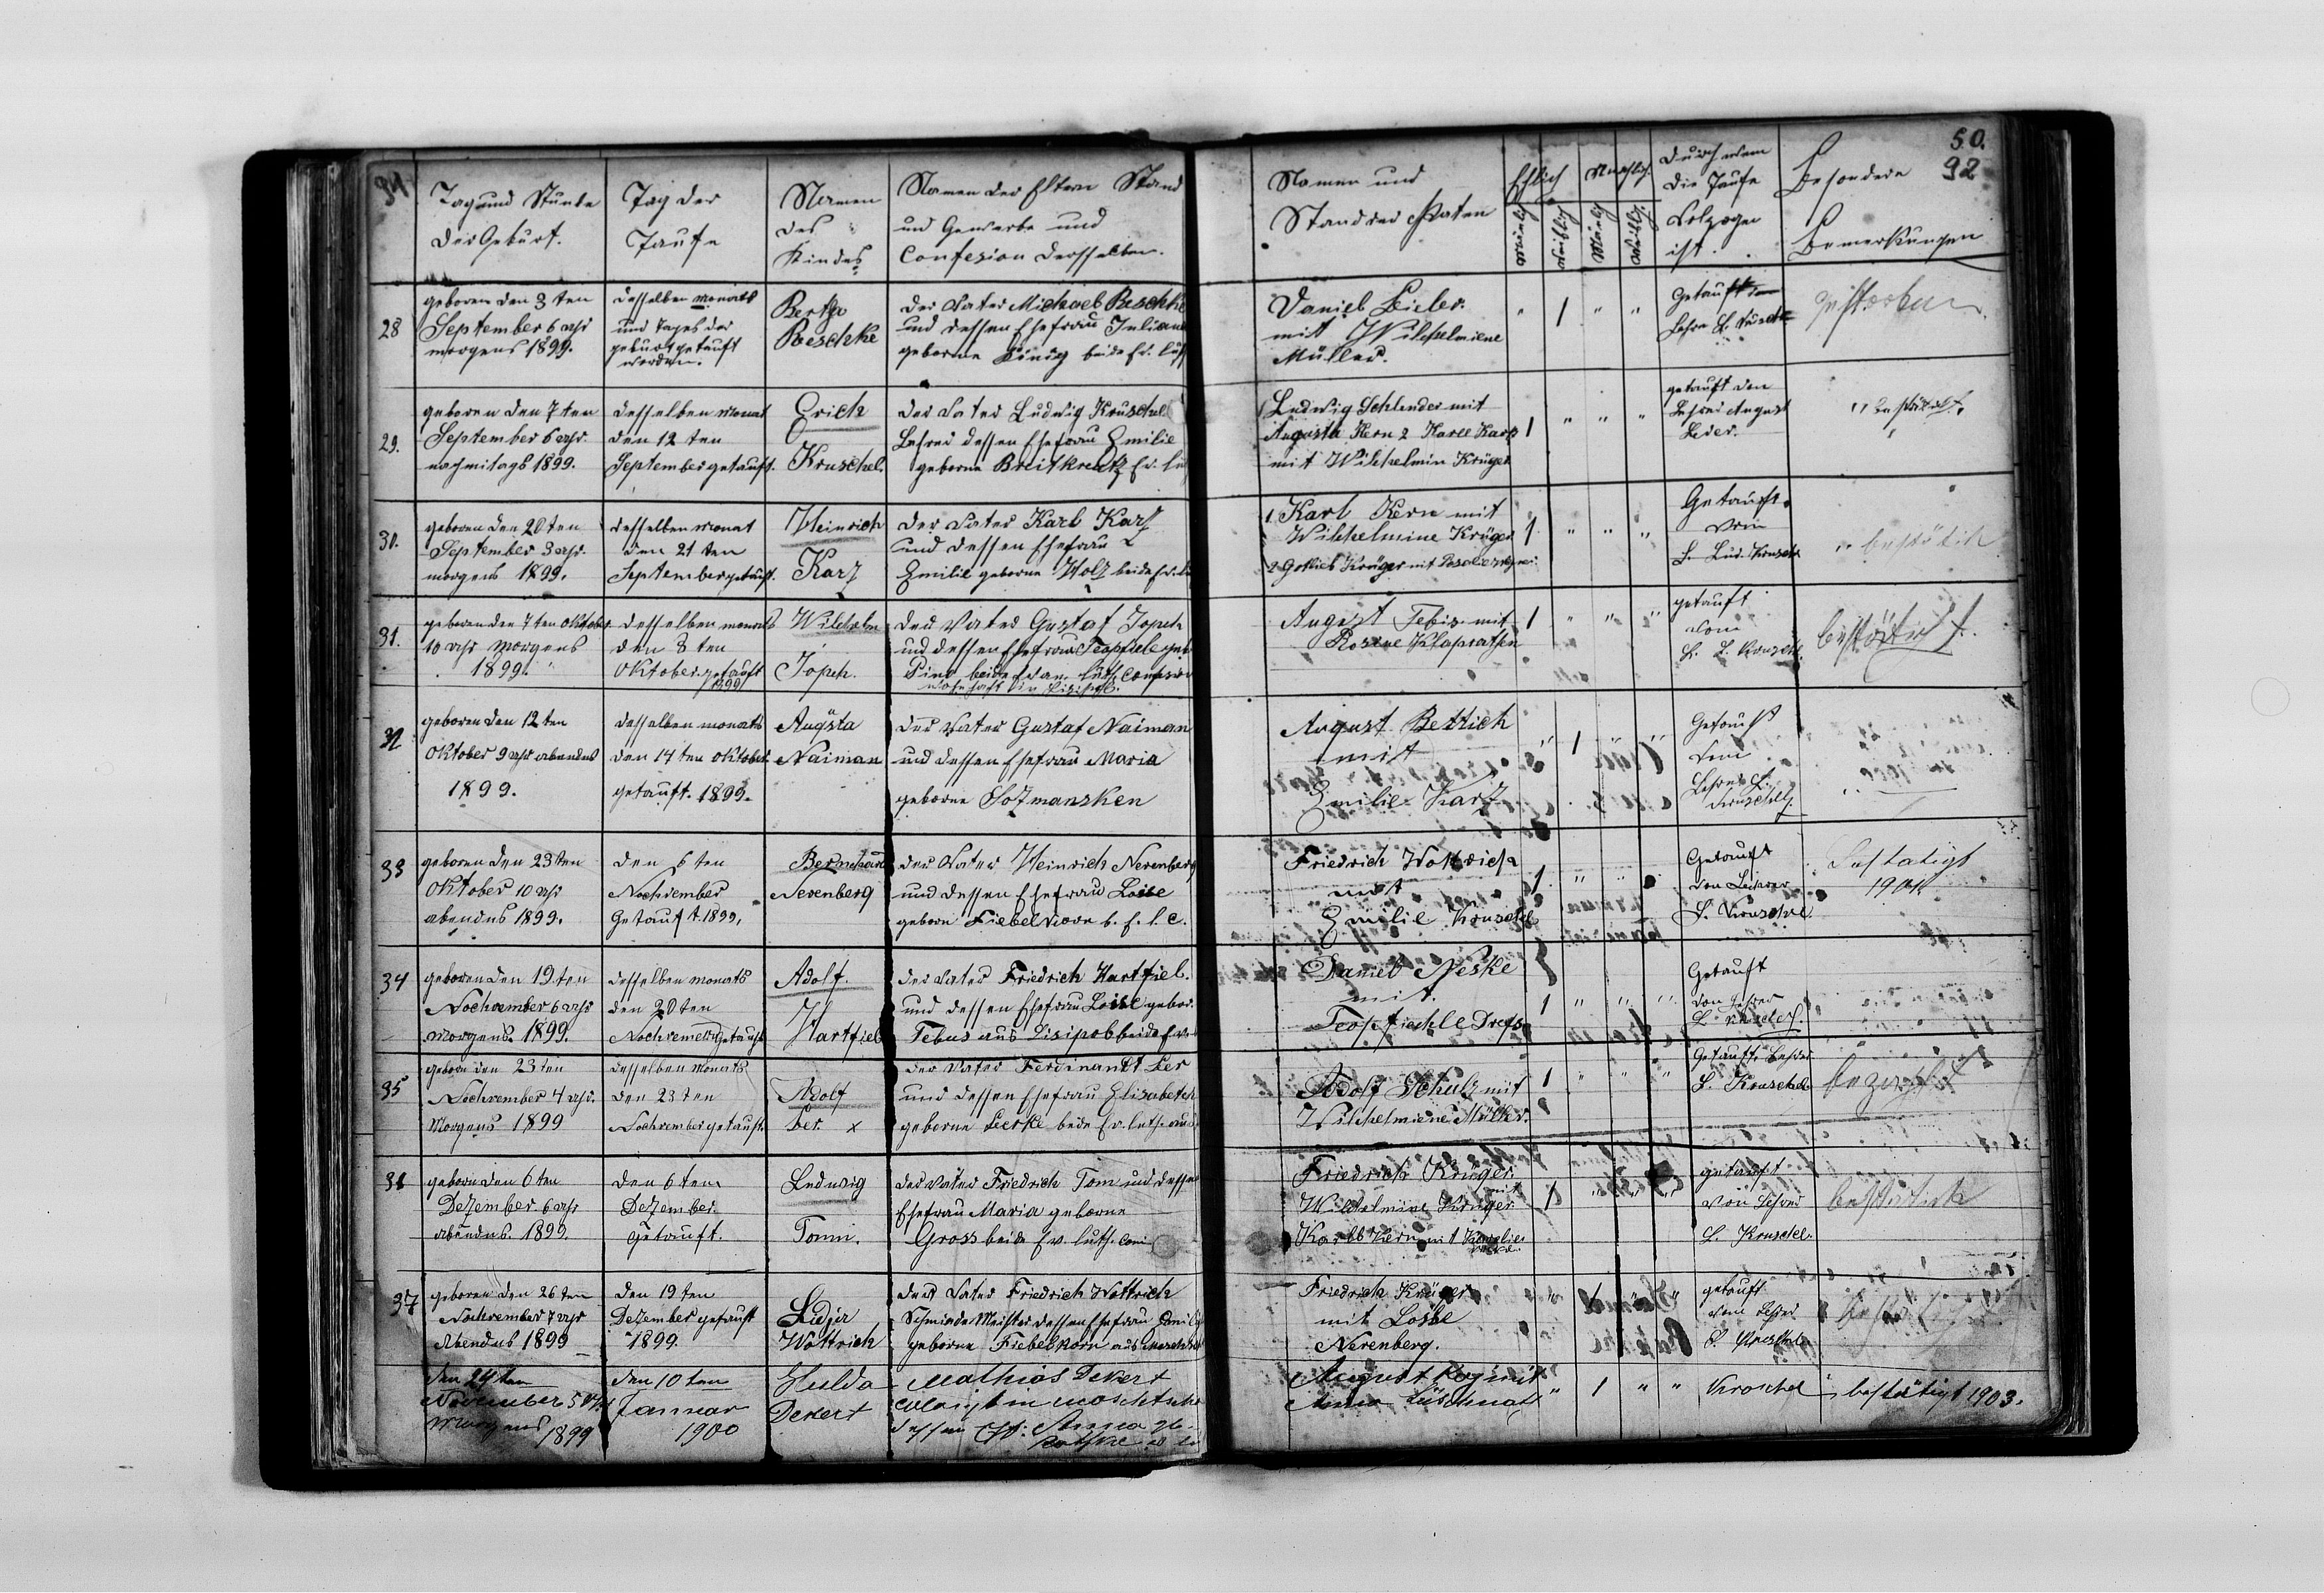 91
Tag und Stunde
der Geburt.
Tag der
Taufe
Namen
des
Kindes
Namen der Eltern Stand
und Gewerbe und
Confesion derselben.
50.
92
Namen und
Stand der Paten
Ehlich
Mänlich
Weiblich
Mänlich
Weiblich
Durch wem
die Taufe
Volzogen
ist.
Besondere
Bemerkungen
28
geboren den 3 ten
September 6 uhr
morgens 1899.
desselben monats
und Tages der
geburt getauft
worden.
Berta
Reschke
der Vater Michael Reschke
und dessen Ehefrau Juliane
geborne König beide Ev. luth
Daniel Leiler.
mit Wilhelmiene
Müller.
" 1 " "
Getauft
gestorben
29.
geboren den 7 ten
September 6 uhr
nachmitags 1899.
desselben monat
den 12 ten
September getauft.
Erich
Kruschel.
der Vater Ludwig Kruschel
Lehrer dessen Ehefrau Emilie
geborne Breitkreutz Ev. lut
1 Ludwig Schlender mit
Augusta Kern 2 Karll Karz
mit Wilhelmin Krüger
1 " " "
getauft von
Lehrer August
30.
geboren den 20 ten
September 3 uhr.
morgens 1899.
desselben monat
den 21 ten
September getauft.
Heinrich
Karz
der Vater Karl Karz
und dessen Ehefrau
Emilie geborne Holz beide Ev. lu
1 Karl Kern mit
Wilhelmine Krüger
2 Gotlieb Krüger mit
1 " " "
Getauft
von
L. Lud. Kruschel
31.
geboren den 7 ten Oktober
10 uhr morgens
1899.
desselben monats
den 8 ten
Oktober getauft
1899
Wilhelm
Jopch.
der Vater Gustaf Jopch
und dessen Ehefrau Teopiele geb
August Tebis mit
Rosine
1 " " "
getauft
vom
L. L. Kruschel.
bestätict.
32
geboren den 12 ten
Oktober 9 uhr abendes
1899.
desselben monats
den 17 ten Oktober
getauft. 1899.
Augusta
Naiman
der Vater Gustaf Naiman
und dessen Ehefrau Maria
geborne Sozmansken
August Bettich
mit
Emilie Karz
" 1 " "
Getauft
Lehrer L.
Kruschel
33
geboren den 23 ten
Oktober 10 uhr
abendes 1899.
den 6 ten
Nochvember
Getauft. 1899.
Bernchard
Nerenberg
der Vater Heinrich Nerenberg
und dessen Ehefrau Loise
geborn Fiebelkorn b. E. l. C.
Friedrich Wottrich
mit
Emilie Kruschel
1 " "
Getauft
von Lehrer
L. Kruschel
bestatigt
1901
34
geboren den 19 ten
Nochvember 6 uhr
morgens. 1899.
desselben monats
den 20 ten
Nochvember getauft
Adolf.
Hartfiel
der Vater Friedrich Hartfiel.
und dessen Ehefrau Loise gebor.
Tebus aus Lisipol beide Ev.
Daniel Neske
mit.
1 " " "
Getauft
von Lehrer
L. Kruschel.
35
geborn den 23 ten
Nochvember 4 uhr.
Morgens 1899
desselben Monats
den 23 ten
Nochvember getauft.
Adolf
Ler. x
der Vater Ferdinandt Ler
und dessen Ehefrau Elisabetch
geborne Leerke beide Ev. luth. aus
Adolf Schulz mit
Wilhelmiene Müller.
1 " " "
Getauft Lehrer
L. Kruschel
36
geborn den 6 ten
Dezember 6 uhr
abendes. 1899.
den 6 ten
Dezember.
getauft.
Ludwig
Tomm.
der Vater Friedrich Tom und dessen
Ehefrau Maria geborne
Gross beide Ev. luth. Con
Friedrich Krüger
mit
Wilhelmine Krüger
Karll Kern mit
1 " " "
getauft
von Lehrer
L. Kruschel.
37
geboren den 26 ten
Nochvember 7 uhr
Abendes 1899
den 19 ten
Dezember getauft
1899.
Lidja
Wottrich
der Vater Friedrich Wottrich
Schmiede Meister dessen Ehefrau Emilie
geborne Fiebelkorn aus
Friedrich Krüger
mit Loise
Nerenberg.
" 1 " "
getauft
vom Lehrer
L. Kruschel
den 24 ten
November 5 Uhr
morgens 1899
den 10 ten
Januar
1900
Hulda
Dekert
Mathias Dekert
dessen Ef: Anna geb.
August Kaz mit
Anna
" 1 " "
Kroschel
bestätigt 1903.